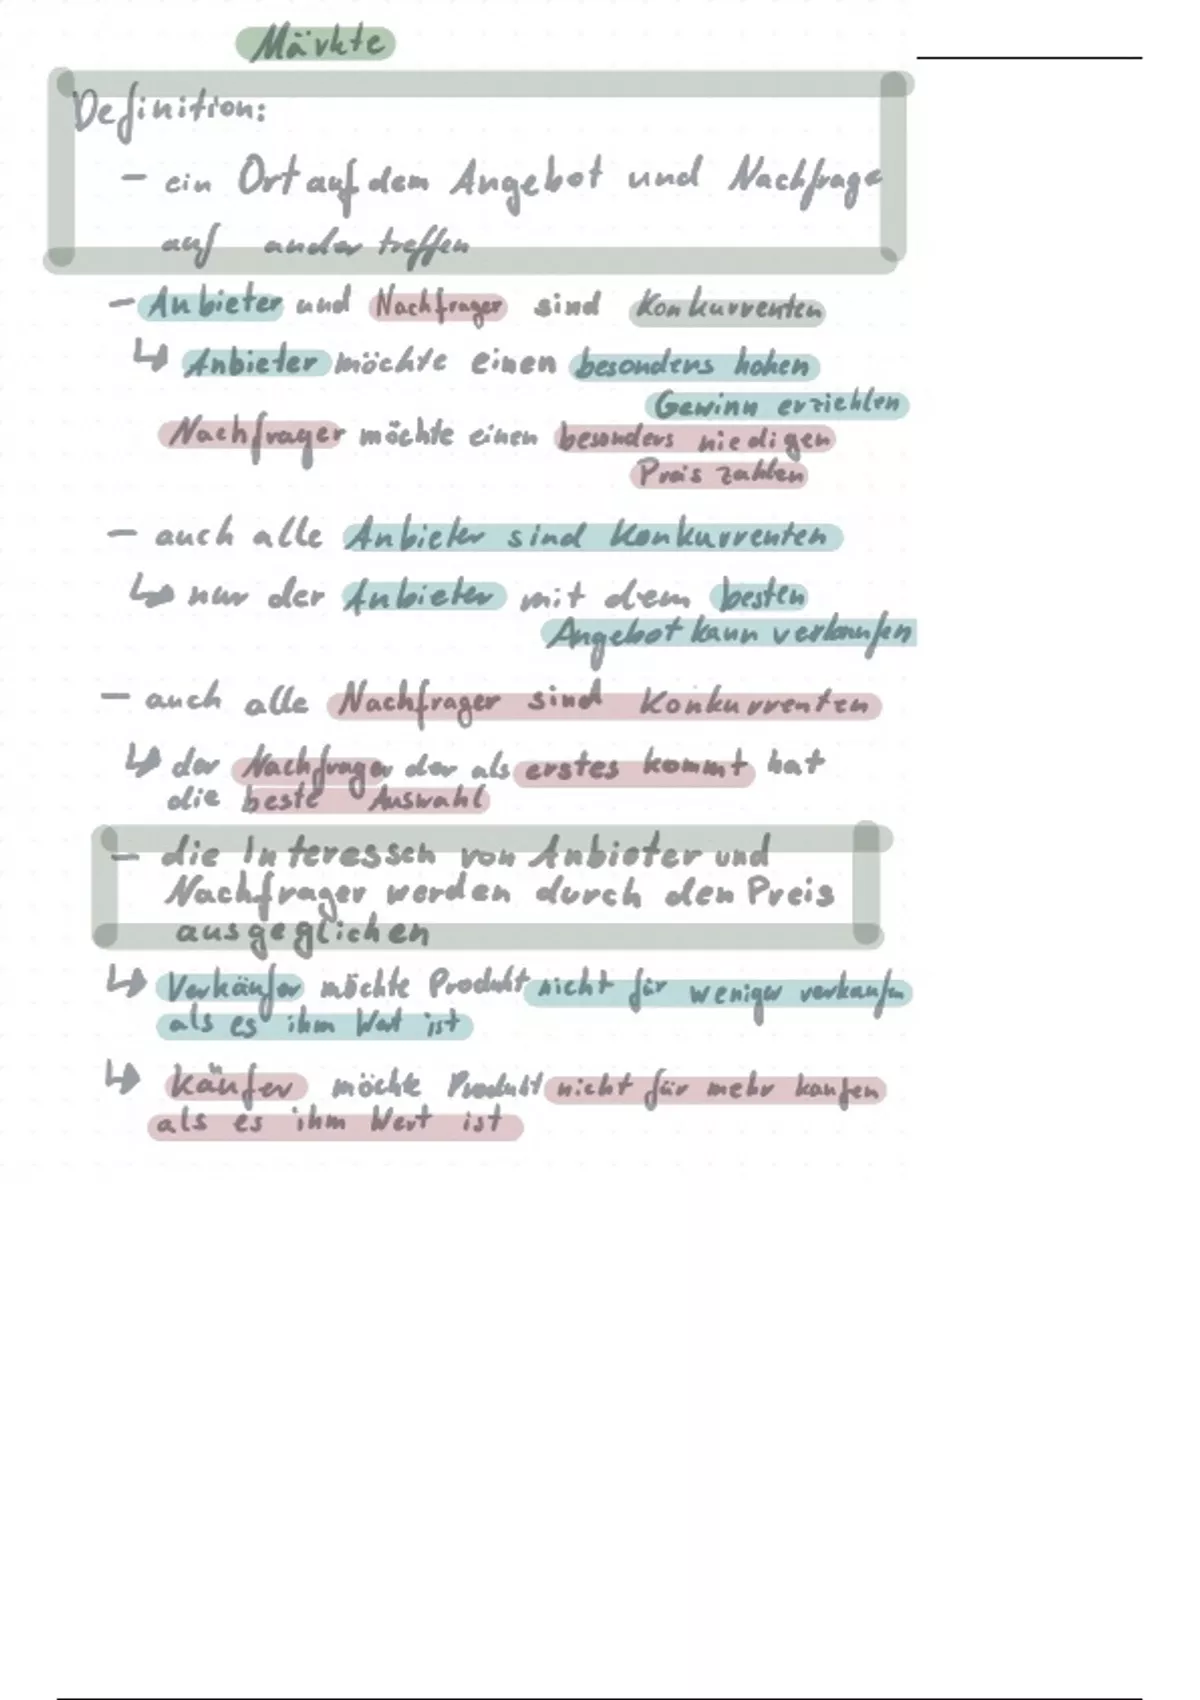 Märkte
Definition:
- ein Ort auf dem Angebot und Nachfrage
auf ander treffen
- Anbieter und Nachfrager sind Konkurrenten
↳ Anbieter möchte einen besonders hohen
Gewinn erziehlen
Nachfrager möchte einen besonders niedigen
Preis zahlen
- auch alle Anbieter sind Konkurrenten
↳ nur der Anbieter mit dem besten
Angebot kann verkaufen
- auch alle Nachfrager sind Konkurrenten
↳ der Nachfrager der als erstes kommt hat
die beste Auswahl
- die Interessen von Anbieter und
Nachfrager werden durch den Preis
ausgeglichen
↳ Verkäufer möchte Produkt nicht für weniger verkaufen
als es ihm Wert ist
↳ Käufer möchte Produkt nicht für mehr kaufen
als es ihm Wert ist